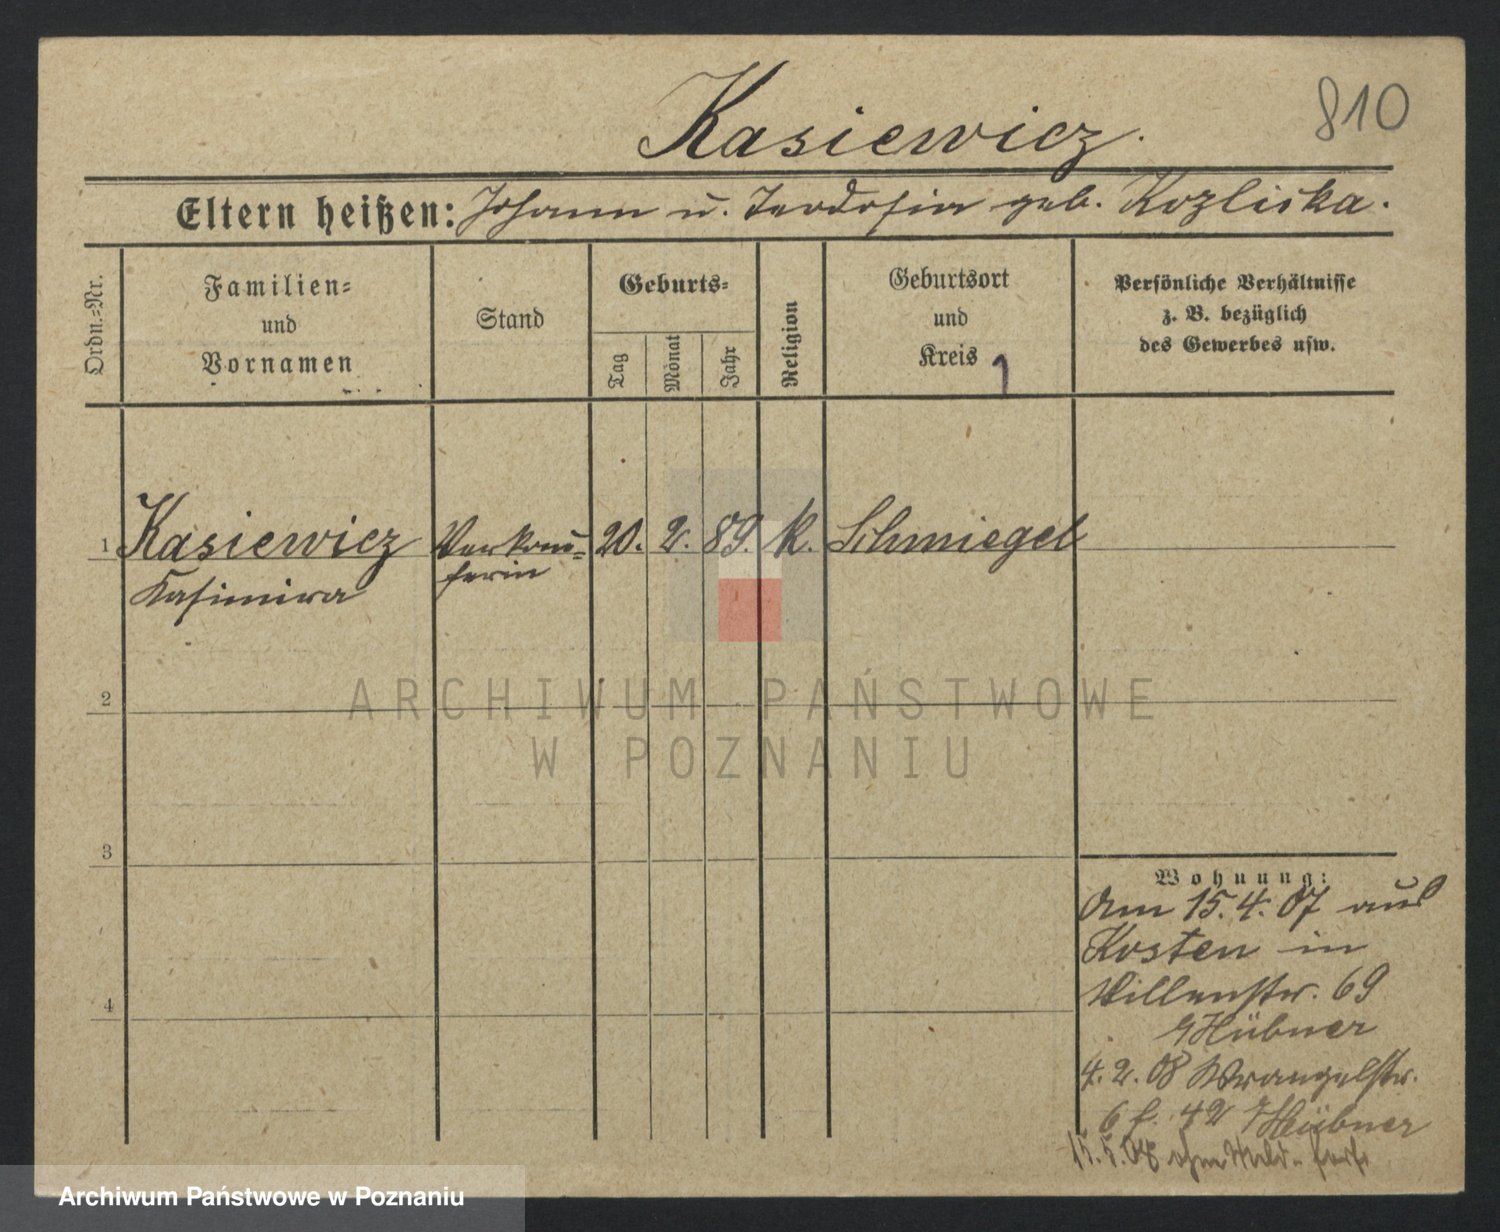 810
Kasiewicz.
Eltern heißen: Johann u. Teodosia geb. Kozlicka.
Ordn.=Nr.
Familien=
und
Vornamen
Stand
Geburts=
Tag
Monat
Jahr
Religion
Geburtsort
und
Kreis
Persönliche Verhältnisse
z. B. bezüglich
des Gewerbes usw.
1 Kasiewicz Verkäu= 20. 2. 89. k. Schmiegel
Kasimira ferin
2
ARCHIWUM PAŃSTWOWE
W POZNANIU
3
Wohnung:
Am 15.4.07 aus
Kosten in
Villenstr. 69
Hübner
4
4.2.08 Wrangelstr.
6 Hübner
15.5.08 ohne
Archiwum Państwowe w Poznaniu